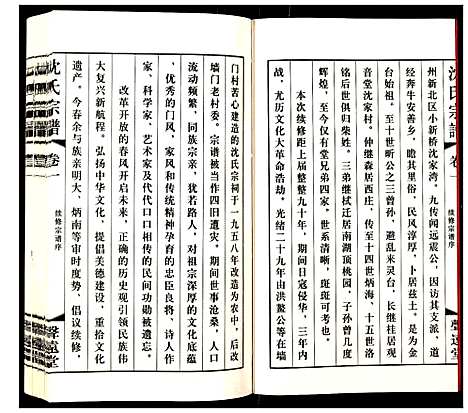 沈氏宗譜
卷一
续修宗谱序
聲遠堂
州新北区小新桥沈家湾。九传闻远震公，因访其支派，道
经奔牛安善乡，瞻其里俗，民风淳厚，卜居兹土。是为金
台始祖。至十世听公之三曾孙，避乱来灵台，长继桂居观
音堂沈家村。仲继森居西庄，传六世至炳海，十五世洛
铭后世俱归柴姓。三弟继栻迁居南湖顶桃园，子孙曾几度
辉煌，至今仅有堂兄弟四家。世系清晰，斑斑可考也。
本次续修距上届整整九十年，期间内忧外患，日寇侵
战，尤历文化大革命浩劫。光绪二十九年由洪鳌公等在墙
门村苦心建造的沈氏宗祠于一九五八年改造为农中，后改
墙门老村委。宗谱被当作四旧遭灾。期间世事沧桑，人口
流动频繁，同族宗亲，犹若路人。对祖宗深厚的文化底蕴
、优秀的门风、家风和传统精神孕育的忠臣良将、诗人作
家、科学家、艺术家及代代口口相传的民间功勋被遗忘。
改革开放的春风开启未来，正确的历史观引领民族伟
大复兴新航程。弘扬中华文化，提倡美德建设，重拾文化
遗产。今春余与族亲明大、炳南等审时度势、倡议续修，
沈氏宗譜
卷
续修宗谱序
聲遠堂